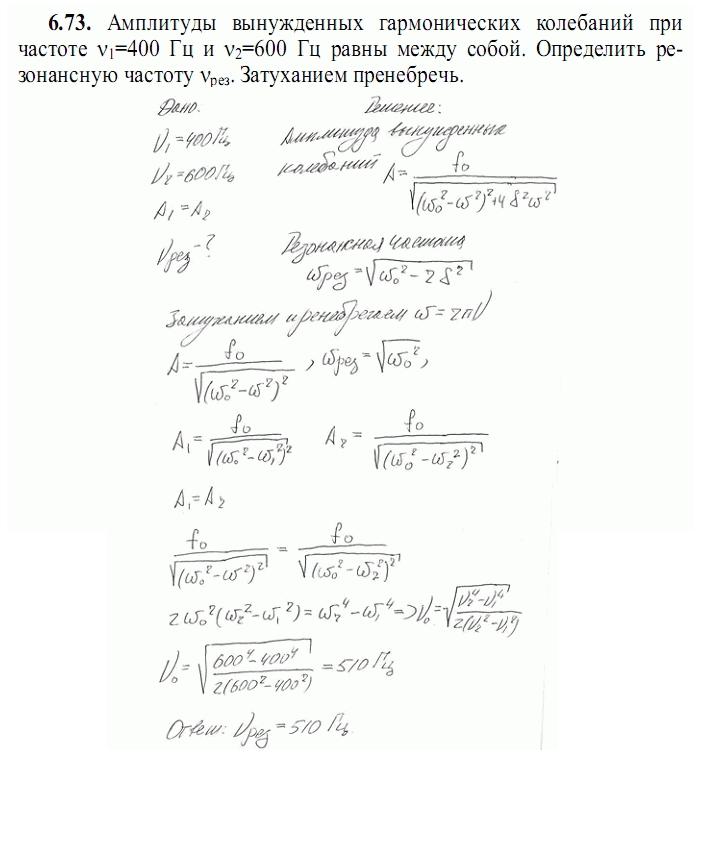 6.73. Амплитуды вынужденных гармонических колебаний при
частоте ν₁=400 Гц и ν₂=600 Гц равны между собой. Определить ре-
зонансную частоту νрез. Затуханием пренебречь.
Дано: Решение:
ν₁=400Гц Амплитуда вынужденных
ν₂=600Гц колебаний A=f₀/√((ω₀²-ω²)²+4δ²ω²)
A₁=A₂
νрез-? Резонансная частота
ωрез=√(ω₀²-2δ²)
Затуханием пренебрегаем ω=2πν
A=f₀/√((ω₀²-ω²)²), ωрез=√(ω₀²),
A₁=f₀/√((ω₀²-ω₁²)²) A₂=f₀/√((ω₀²-ω₂²)²)
A₁=A₂
f₀/√((ω₀²-ω²)²) = f₀/√((ω₀²-ω₂²)²)
2ω₀²(ω₂²-ω₁²)=ω₂⁴-ω₁⁴=>ν₀=√((ν₂⁴-ν₁⁴)/(2(ν₂²-ν₁⁴)))
ν₀=√((600⁴-400⁴)/(2(600²-400²)))=510 Гц
Ответ: νрез=510 Гц.